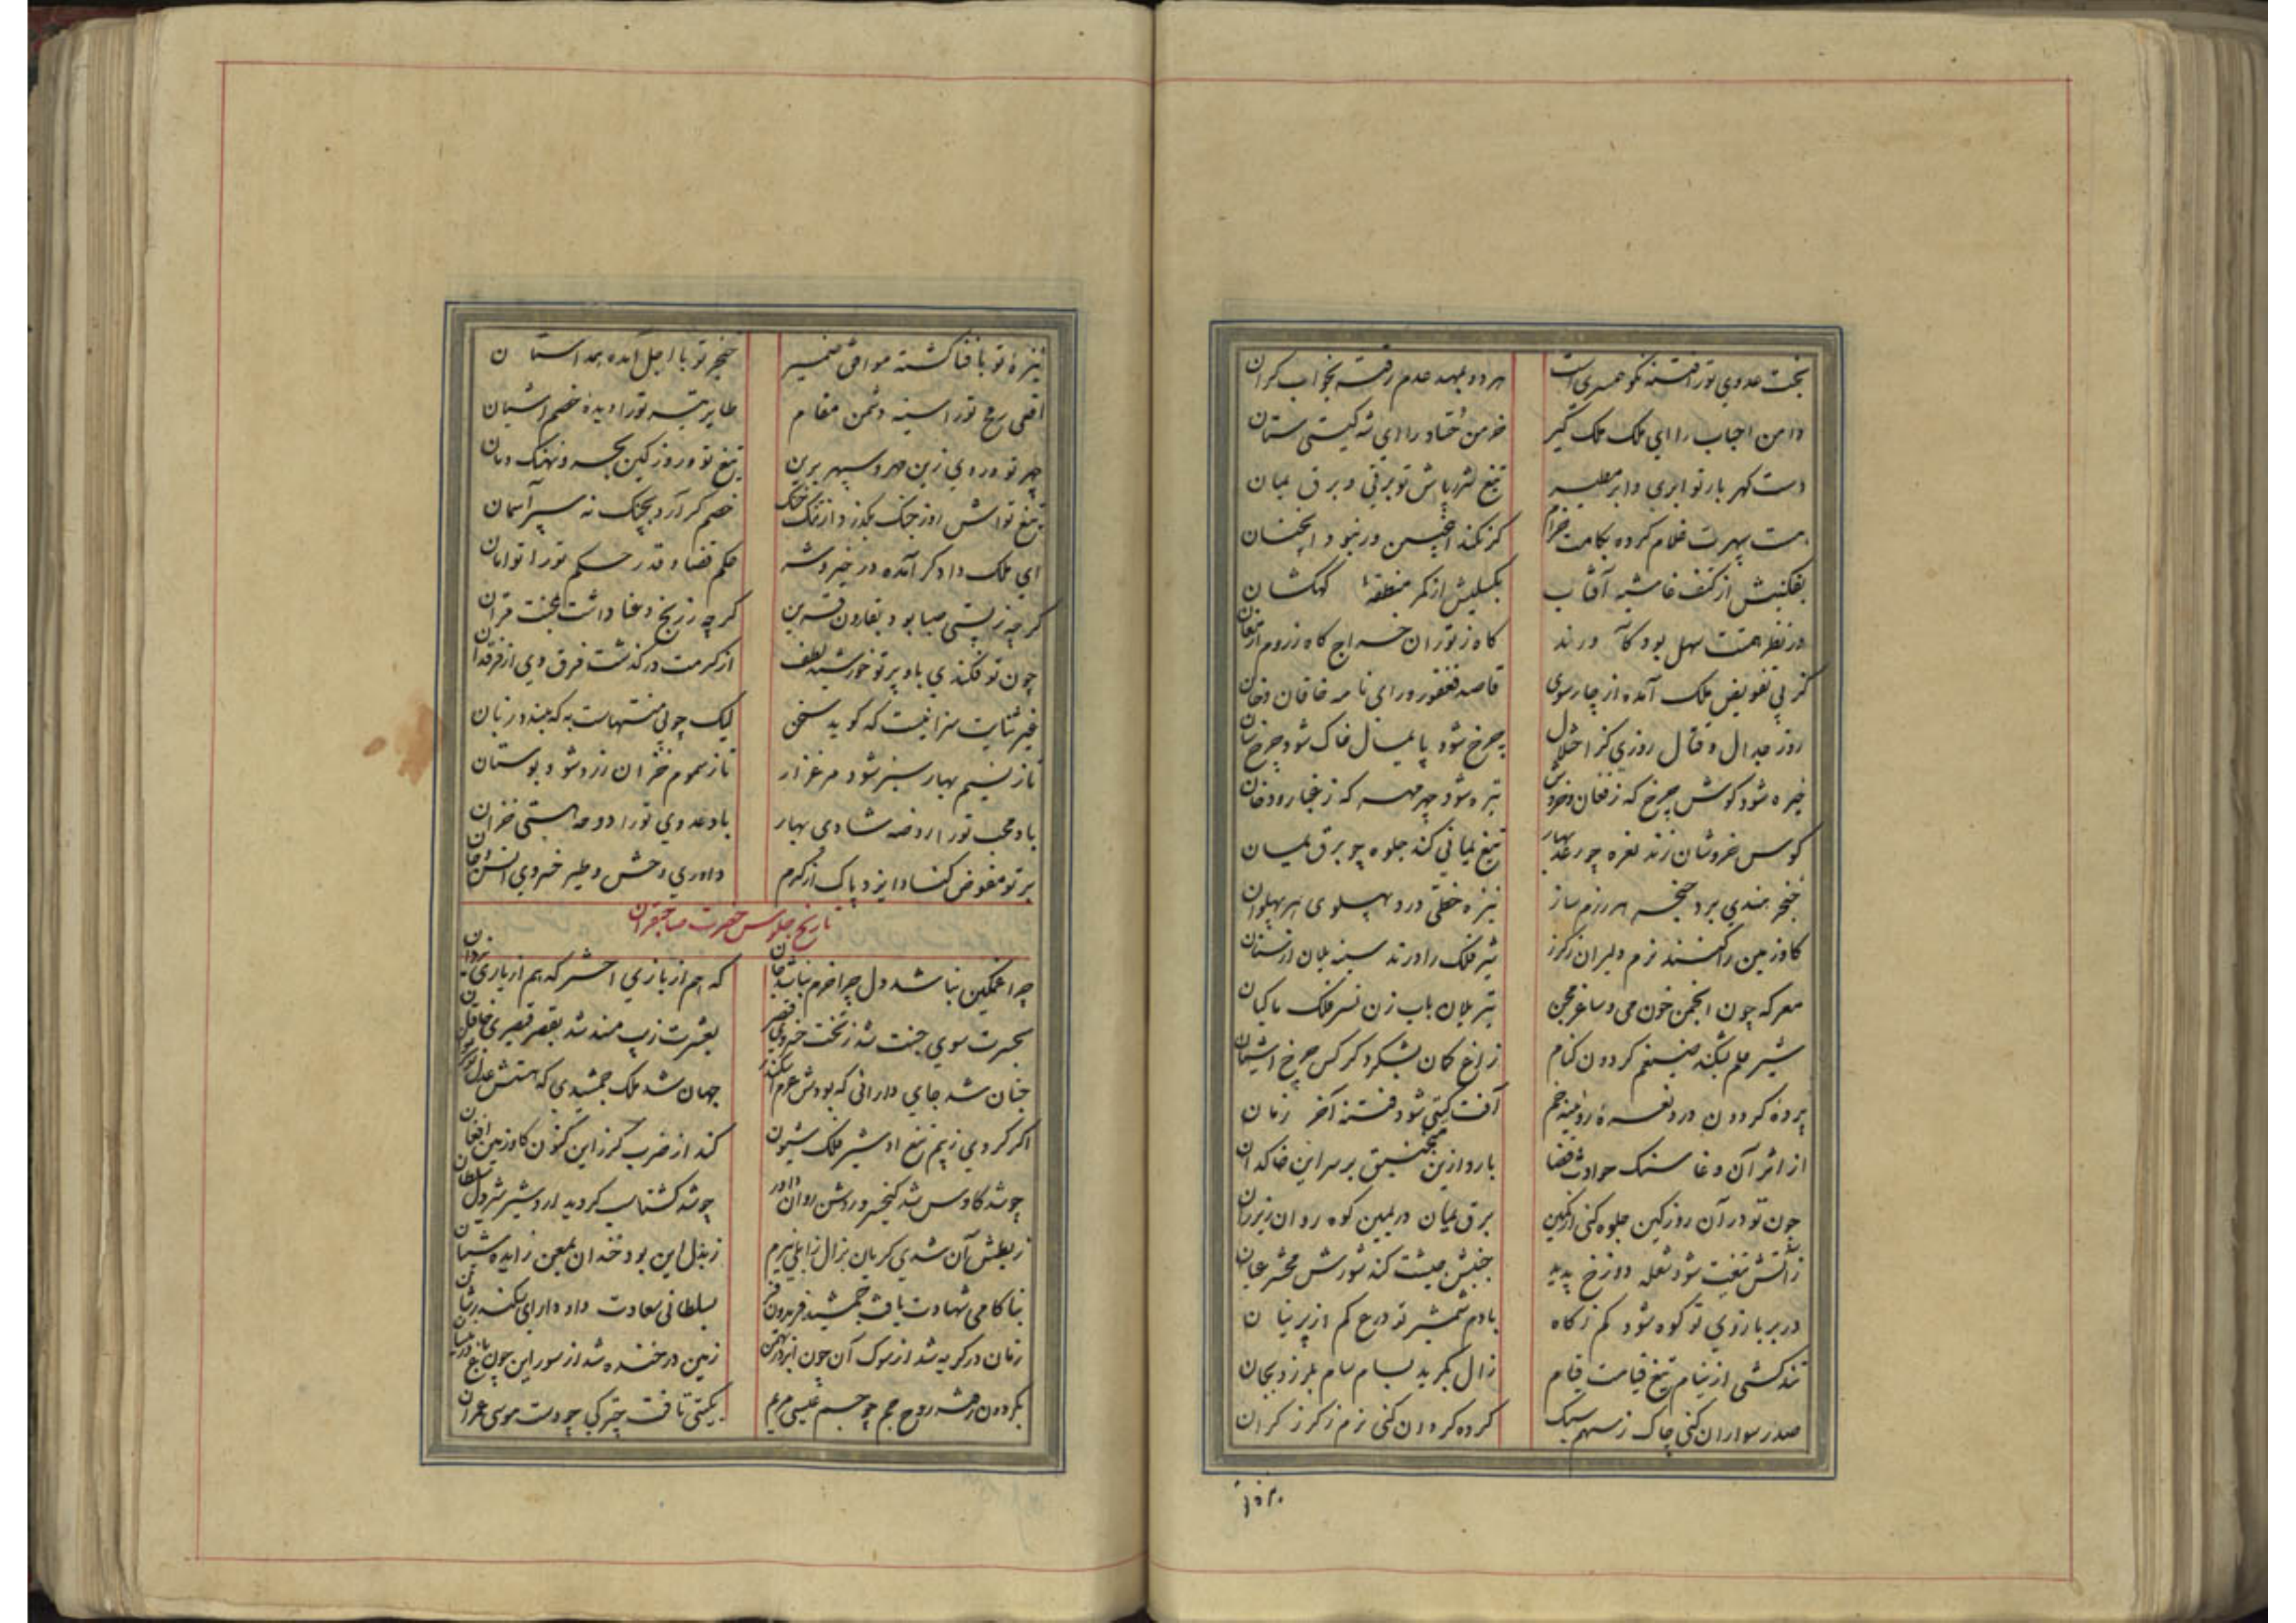 بخت عدوي تو را فتنه نکو همسری است هر دو بمهد عدم رفته بخواب گران
دامن احباب را ای ملک ملک گیر خرمن را ای شه گیتی ستان
دست گهر بار تو ابری و ابر مطیر تیغ شرربار تو برقی و برق یمان
هست سپهرت غلام کرده بکامت خرام گر نکند اینچنین ور نبود آنچنان
بفکنیش از کتف غاشیه آفتاب بکسلیش از کمر منطقهٔ کهکشان
در نظر همتت سهل بود کآورند گاه ز توران خراج گاه ز روم ارمغان
کز پی تفویض ملک آمده از چارسوی قاصد فغفور و رای نامه خاقان و خان
روز جدال و قتال روزی کز اختلال چرخ شود پایمال خاک شود چرخ سان
خیره شود گوش چرخ که ز فغان و خروش تیره شود چهر مهر که ز غبار و دخان
کوس خروشان زند نعره چو رعد بهار تیغ یمانی کند جلوه چو برق یمان
خنجر هندی برد حنجر هر رزم ساز نیزه خطی درد پهلوی هر پهلوان
گاو زمین را کنند نرم دلیران ز گرز شیر فلک را درند سینه یلان از سنان
معرکه چون انجمن خون می و ساغر مجن تیر یلان باب زن نسر فلک ماکیان
شیر علم بشکند ضیغم گردون کنام زاغ کمان بشکرد کرکس چرخ آشیان
پرده گردون درد نعره روئینه خم آفت گیتی شود فتنه آخر زمان
از اثر آن وغا سنگ حوادث قضا بارد ازین منجنیق بر سر این خاکدان
چون تو در آن روز کین جلوه کنی از کمین برق یمان در یمین کوه روان زیر ران
ز آتش تیغت شود شعله دوزخ پدید جنبش جیشت کند شورش محشر عیان
در بر بازوی تو کوه شود کم ز کاه با دم شمشیر تو درع کم از پرنیان
تند کشی از نیام تیغ قیامت قیام زال بگرید بسام سام بلرزد بجان
صدر سواران کنی چاک ز سهم سبک گرده گردان کنی نرم ز گرز گران
نیزهٔ تو با فنا گشته موافق ضمیر خنجر تو با اجل آمده همداستان
افعی رمح تو را سینه دشمن مقام طایر تیر تو را دیده خصم آشیان
چهر تو و روی زین مهر و سپهر برین تیغ تو و روز کین بحر و نهنگ دمان
تیغ تواش روز جنگ بگذرد از تنگ خنگ خصم گر آرد بچنگ نه سپر آسمان
ای ملک دادگر آمده در خیر و شر حکم قضا و قدر حکم تو را توامان
گرچه ز پستی صبا بود بقارون قرین گرچه ز رنج و عنا داشت بختت قران
چون تو فکندی باو پرتو خورشید لطف از کرمت درگذشت فرق وی از فرقدان
غیر ثنایت سزا نیست که گوید سخن لیک چو بی منتهاست به که ببندد زبان
تا ز نسیم بهار سبز شود مرغزار تا ز سموم خزان زرد شود بوستان
باد محب تو را روضه شادی بهار باد عدوی تو را دوحه هستی خزان
بر تو مفوض کناد ایزد پاک از کرم داوری وحش و طیر خسروی انس و جان
تاریخ جلوس حضرت صاحبقران
چرا غمگین نباشد دل چرا خرم نباشد جان که هم از بازی اختر که هم از یاری یزدان
بحسرت سوی جنت شد ز تخت خسروی قیصر بعشرت زیب مسند شد بقصر قیصری خاقان
جنان شد جای دارائی که بودش عزم اسکندر جهان شد ملک جمشیدی که هستش عدل
اگر کردی ز بیم تیغ او شیر فلک شیون کند از ضرب گرز این کنون گاو زمین افغان
چو شد کاوس شد کیخسرو روشن روان داور چو شد گشتاسب گردید اردشیر شیردل سلطان
ز بطش آن شدی گریان بزال زابلی نیرم ز بذل این بود خندان بمعن زایده شیبان
بناکامی شهادت یافت جمشید فریدون فر بسلطانی سعادت داد دارای سکندر شان
زمان در گریه شد از سوک آن چون ابر در بهمن زمین در خنده شد از سور این چون باغ در نیسان
بگردون رفت روح جم چو جسم عیسی مریم بگیتی تافت چتر کی چو دست موسی عمران